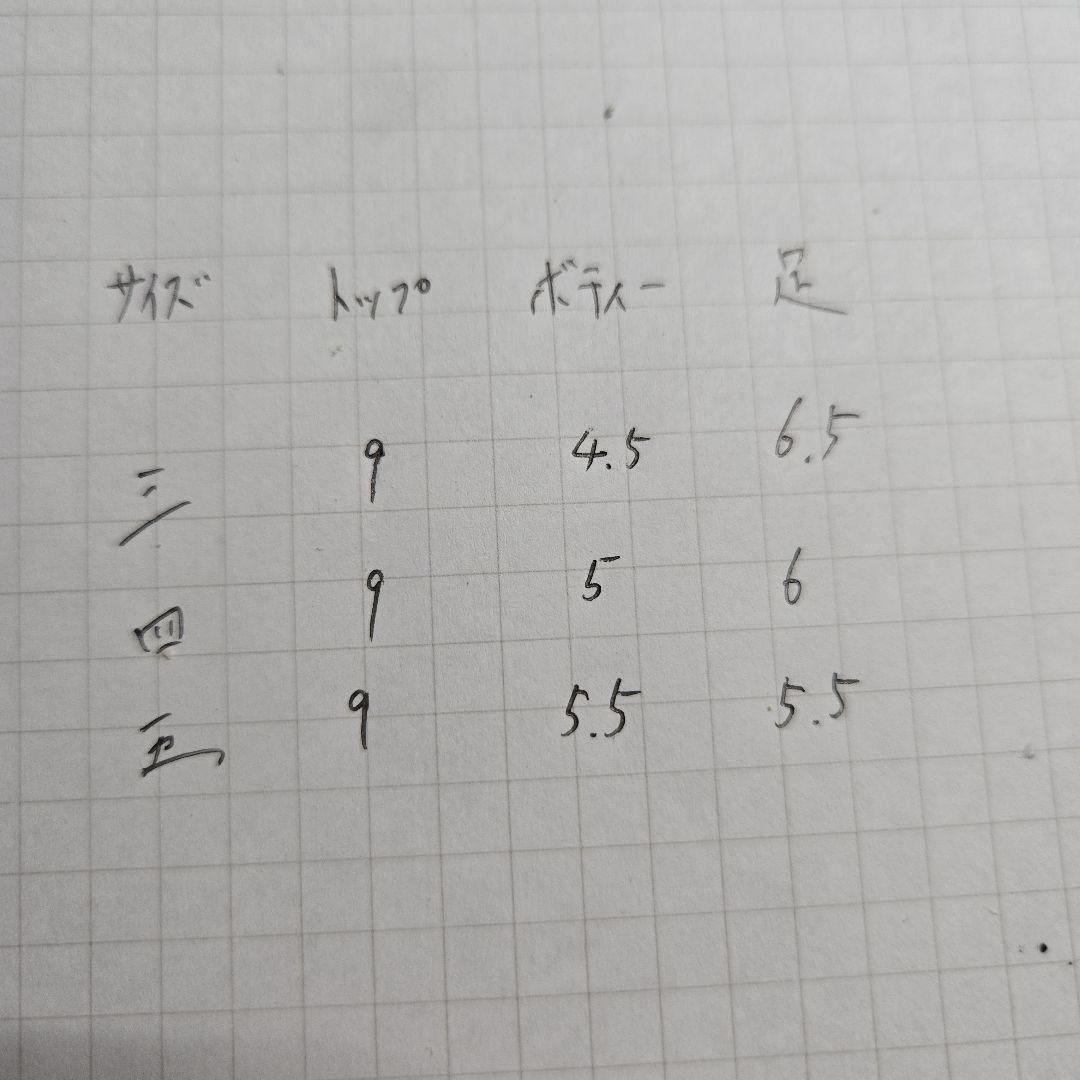 サイズ トップ ボディー 足
三 9 4.5 6.5
四 9 5 6
五 9 5.5 5.5